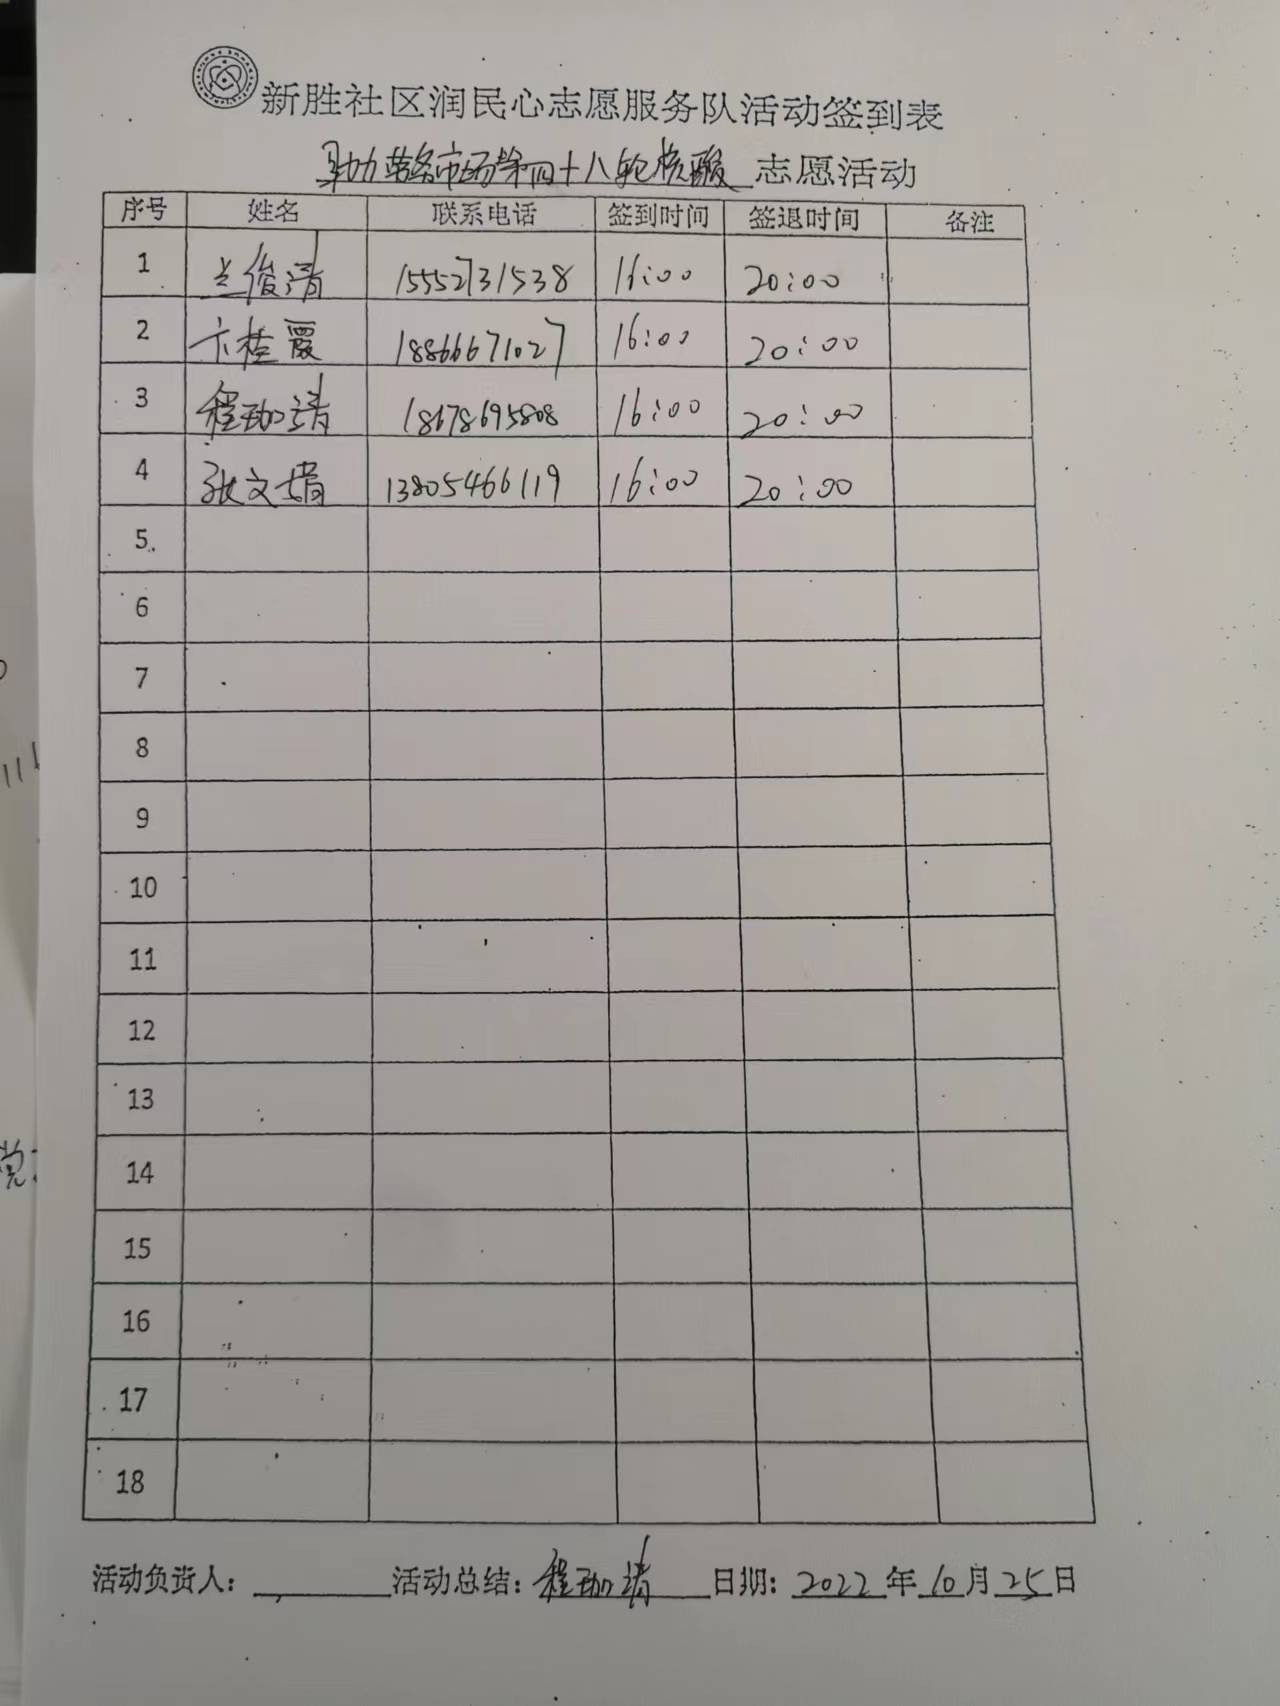 新胜社区润民心志愿服务队活动签到表
助力 市场第四十八轮核酸 志愿活动
序号 姓名 联系电话 签到时间 签退时间 备注
1 兰俊清 15552731538 16:00 20:00
2 卞桂霞 18866671027 16:00 20:00
3 程珈靖 18678695808 16:00 20:00
4 张文婧 13805466119 16:00 20:00
5
6
7
8
9
10
11
12
13
14
15
16
17
18
活动负责人: 活动总结: 程珈靖 日期: 2022 年 10 月 25 日